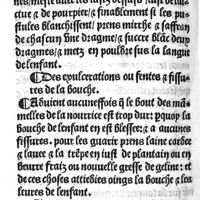 et de pourpier/ et finablement si les pu
stules blanchissent/ prens mirrhe et saffran
de chascun vne dragme/ et succre blāc deux
dragmes/ et metz en pouldre sus la langue
de lenfant.
Des exulcerations ou fentes et fissu
res de la bouche.
Aduient aucunesfois q̄ le bout des ma
melles de la nourrice est trop dur: pquoy la
bouche de lenfant en est blessee: et a aucunes
fissures. pour les guarir prens laine cardee
et laue et la trēpe en iust de plantain ou en
beurre fraiz ou nouuelle gresse de geline: et
de ces choses attiedies oings la bouche et les
leures de lenfant.